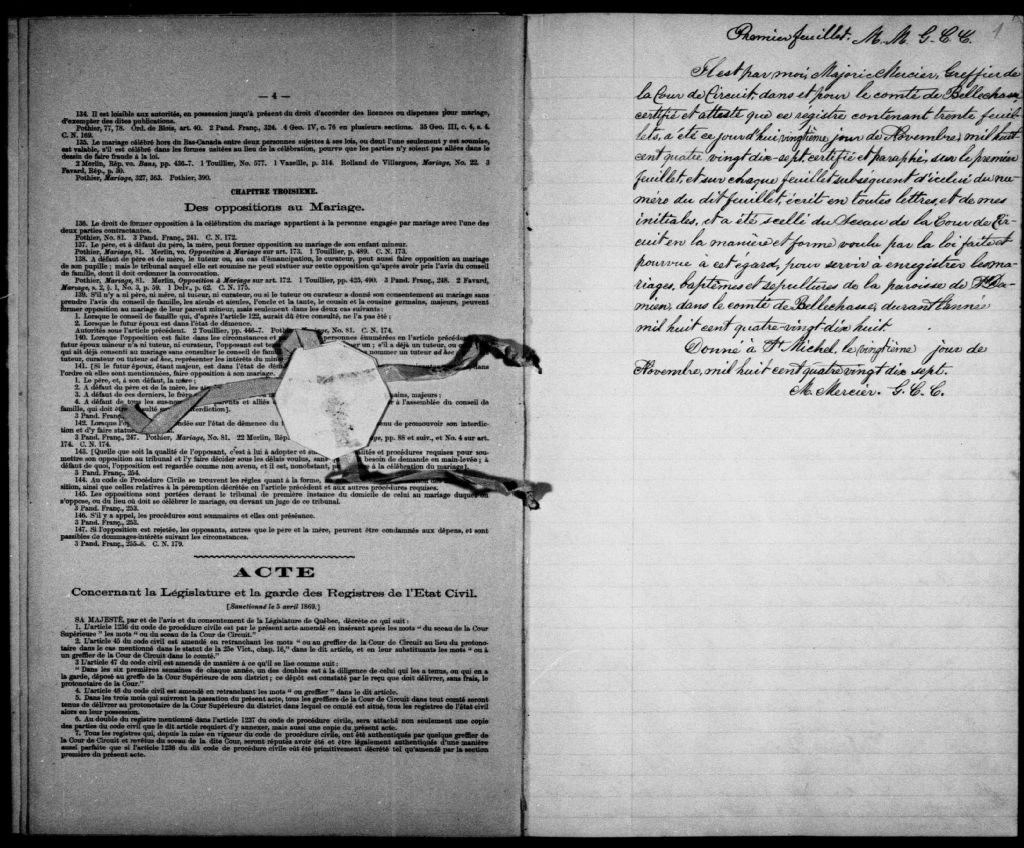 — 4 —
134. Il est loisible aux autorités, en possession jusqu'à présent du droit d'accorder des licences ou dispenses pour mariage,
d'exempter des dites publications.
Pothier, 77, 78. Ord. de Blois, art. 40. 2 Pand. Franç., 324. 4 Geo. IV, c. 76 en plusieurs sections. 35 Geo. III, c. 4, s. 4.
C. N. 169.
135. Le mariage célébré hors du Bas-Canada entre deux personnes sujettes à ses lois, ou dont l'une seulement y est soumise,
est valable, s'il est célébré dans les formes usitées au lieu de la célébration, pourvu que les parties n'y soient pas allées dans le
dessein de faire fraude à la loi.
2 Merlin, Rép. vo. Bans, pp. 436-7. 1 Touillier, No. 577. 1 Vazeille, p. 314. Rolland de Villargues, Mariage, No. 22. 3
Favard, Rép., p. 30.
Pothier, Mariage, 327, 363. Pothier, 390.
CHAPITRE TROISIEME.
Des oppositions au Mariage.
136. Le droit de former opposition à la célébration du mariage appartient à la personne engagée par mariage avec l'une des
deux parties contractantes.
Pothier, No. 81. 3 Pand. Franç., 241. C. N. 172.
137. Le père, et à défaut du père, la mère, peut former opposition au mariage de son enfant mineur.
Pothier, Mariage, 81. Merlin, vo. Opposition à Mariage sur art. 173. 1 Touillier, p. 489. C. N. 173.
138. A défaut de père et de mère, le tuteur ou, au cas d'émancipation, le curateur, peut aussi faire opposition au mariage
de son pupille; mais le tribunal auquel elle est soumise ne peut statuer sur cette opposition qu'après avoir pris l'avis du conseil
de famille, dont il doit ordonner la convocation.
Pothier, Mariage, 81. Merlin, Opposition à Mariage sur art. 172. 1 Touillier, pp. 425, 490. 3 Pand. Franç., 248. 2 Favard,
Mariage, s. 2, § 1, No. 3, p. 59. 1 Delv., p. 62. C. N. 175.
139. S'il n'y a ni père, ni mère, ni tuteur, ni curateur, ou si le tuteur ou curateur a donné son consentement au mariage sans
prendre l'avis du conseil de famille, les aïeuls et aïeules, l'oncle et la tante, le cousin et la cousine germains, majeurs, peuvent
former opposition au mariage de leur parent mineur, mais seulement dans les deux cas suivants:
1. Lorsque le conseil de famille qui, d'après l'article 122, aurait dû être consulté, ne l'a pas été;
2. Lorsque le futur époux est dans l'état de démence.
Autorités sous l'article précédent. 2 Touillier, pp. 446-7. Poth No. 81. C. N. 174.
140. Lorsque l'opposition est faite dans les circonstances et personnes énumérées en l'article précéde
futur époux mineur n'a ni tuteur, ni curateur, l'opposant est ten ur un; s'il a déjà un tuteur, ou c
qui ait déjà consenti au mariage sans consulter le conseil de fam nommer un tuteur ad hoc
tuteur, curateur ou tuteur ad hoc, représenter les intérêts du mine
141. [Si le futur époux, étant majeur, est dans l'état de dém
l'ordre où elles sont mentionnées, faire opposition à son mariage.
1. Le père, et, à son défaut, la mère;
2. A défaut du père et de la mère, les aïe
3. A défaut de ces derniers, le frère ains, majeurs;
4. A défaut de tous les sus-nom rents et alliés à l'assemblée du conseil de
famille, qui doit être sulté nterdiction].
3 Pand. Franç.
142. Lorsque l'o ndée sur l'état de démence du enu de promouvoir son interdic-
tion et d'y faire statue
3 Pand. Franç., 247. Pothier, Mariage, No. 81. 22 Merlin, Rép pe, pp. 88 et suiv., et No. 4 sur art.
174. C. N. 174.
143. [Quelle que soit la qualité de l'opposant, c'est à lui à adopter et su ités et procédures requises pour sou-
mettre son opposition au tribunal et l'y faire décider sous les délais voulus, san besoin de demande en main-levée; à
défaut de quoi, l'opposition est regardée comme non avenu, et il est, nonobstant, p à la célébration du mariage].
3 Pand. Franç., 254.
144. Au code de Procédure Civile se trouvent les règles quant à la forme,
sition, ainsi que celles relatives à la péremption décrétée en l'article précédent et aux autres procédures requises.
145. Les oppositions sont portées devant le tribunal de première instance du domicile de celui au mariage duquel on
s'oppose, ou du lieu où doit se célébrer le mariage, ou devant un juge de ce tribunal.
3 Pand. Franç., 253.
146. S'il y a appel, les procédures sont sommaires et elles ont préséance.
3 Pand. Franç., 253.
147. Si l'opposition est rejetée, les opposants, autres que le père et la mère, peuvent être condamnés aux dépens, et sont
passibles de dommages-intérêts suivant les circonstances.
3 Pand. Franç., 255-6. C. N. 179.
ACTE
Concernant la Législature et la garde des Registres de l'Etat Civil.
[Sanctionné le 5 avril 1869.]
SA MAJESTÉ, par et de l'avis et du consentement de la Législature de Québec, décrète ce qui suit:
1. L'article 1236 du code de procédure civile est par le présent acte amendé en insérant après les mots " du sceau de la Cour
Supérieure " les mots " ou du sceau de la Cour de Circuit."
2. L'article 45 du code civil est amendé en retranchant les mots " ou au greffier de la Cour de Circuit au lieu du protono-
taire dans le cas mentionné dans le statut de la 25e Vict., chap. 16," dans le dit article, et en leur substituant les mots " ou à
un greffier de la Cour de Circuit dans le comté."
3 L'article 47 du code civil est amendé de manière à ce qu'il se lise comme suit:
" Dans les six premières semaines de chaque année, un des doubles est à la diligence de celui qui les a tenus, ou qui en a
la garde, déposé au greffe de la Cour Supérieure de son district; ce dépôt est constaté par le reçu que doit délivrer, sans frais, le
protonotaire de la Cour."
4. L'article 48 du code civil est amendé en retranchant les mots " on greffier " dans le dit article.
5. Dans les trois mois qui suivront la passation du présent acte, tous les greffiers de la Cour de Circuit dans tout comté seront
tenus de délivrer au protonotaire de la Cour Supérieure du district dans lequel ce comté est situé, tous les registres de l'état civil
alors en leur possession.
6. Au double du registre mentionné dans l'article 1237 du code de procédure civile, sera attaché non seulement une copie
des parties du code civil que le dit article requiert d'y annexer, mais aussi une copie du présent acte.
7. Tous les registres qui, depuis la mise en vigueur du code de procédure civile, ont été authentiqués par quelque greffier de
la Cour de Circuit et revêtus du sceau de la dite Cour, seront réputés avoir été et être légalement authentiqués d'une manière
aussi parfaite que si l'article 1236 du dit code de procédure civile eût été primitivement décrété tel qu'amendé par la section
première du présent acte.
Premier feuillet. M. M. G. C. C. 1
Il est par moi, Majoric Mercier, Greffier de
la Cour de Circuit, dans et pour le comté de Bellechasse
certifié et attesté que ce régistre contenant trente feuil-
lets, a été ce jourd'hui, vingtième jour de Novembre, mil huit
cent quatre vingt dix-sept, certifié et paraphé, sur le premier
feuillet, et sur chaque feuillet subséquent d'icelui du nu-
méro du dit feuillet, écrit en toutes lettres, et de mes
initiales, et a été scellé du Sceau de la Cour de Cir-
cuit en la manière et forme voulu par la loi faite et
pourvue à cet égard, pour servir à enregistrer les ma-
riages, baptêmes et sépultures de la paroisse de St Da-
mien, dans le comté de Bellechasse, durant l'année
mil huit cent quatre-vingt dix huit.
Donné à St Michel, le vingtième jour de
Novembre, mil huit cent quatre vingt dix sept.
M. Mercier. G. C. C.